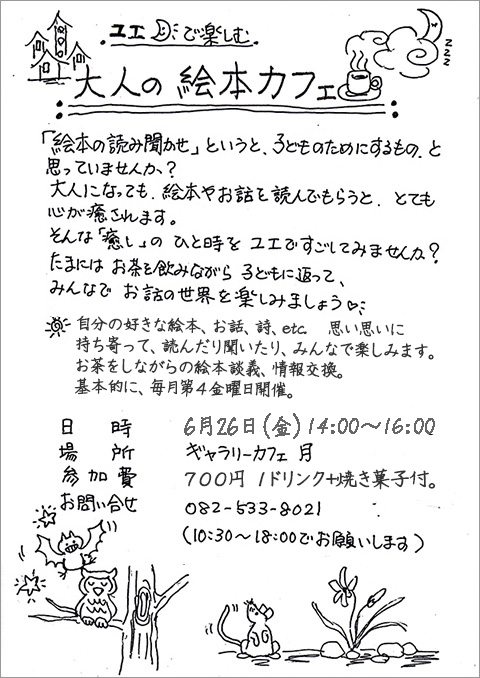 ユエ 月 で楽しむ
大人の 絵本カフェ
zzz
「絵本の読み聞かせ」というと、子どものためにするもの、と
思っていませんか?
大人になっても、絵本やお話を読んでもらうと、とても
心が癒されます。
そんな「癒し」の ひと時を ユエですごしてみませんか?
たまには お茶を飲みながら 子どもに返って、
みんなで お話の世界を楽しみましょう♡
自分の好きな絵本、お話、詩、etc 思い思いに
持ち寄って、読んだり聞いたり、みんなで楽しみます。
お茶をしながらの絵本談義、情報交換。
基本的に、毎月第4金曜日開催。
日 時 6月26日(金)14:00〜16:00
場 所 ギャラリーカフェ 月
参加費 700円 1ドリンク+焼き菓子付。
お問い合せ 082-533-8021
(10:30〜18:00でお願いします)